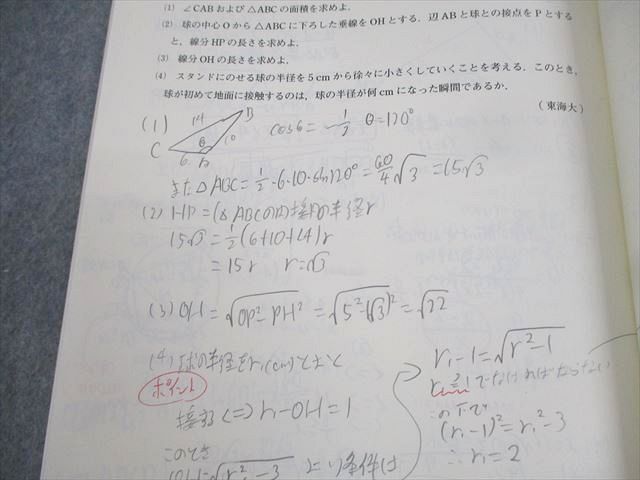 (1) ∠CAB および △ABC の面積を求めよ.
(2) 球の中心 O から △ABC に下ろした垂線を OH とする. 辺 AB と球との接点を P とする
と, 線分 HP の長さを求めよ.
(3) 線分 OH の長さを求めよ.
(4) スタンドにのせる球の半径を 5 cm から徐々に小さくしていくことを考える. このとき,
球が初めて地面に接触するのは, 球の半径が何 cm になった瞬間であるか.
(東海大)
(1)
14 B
C θ 10
6 A
cosθ = -1/2 θ=120°
また △ABC = 1/2・6・10・sin120° = 60/4 √3 = 15√3
(2) HP = (△ABCの内接円の半径r
15√3 = 1/2 (6+10+14)r
= 15r r=√3
(3) OH = √OP²-PH² = √5²-(√3)² = √22
(4) 球の半径をr₁(cm)とおくと
ポイント
接する⇔ r₁-OH=1
このとき
OH=√r₁²-3 より条件は
r₁-1=√r²-1
r₁≧1でなければならない
この下で
(r₁-1)²=r₁²-3
∴ r₁=2